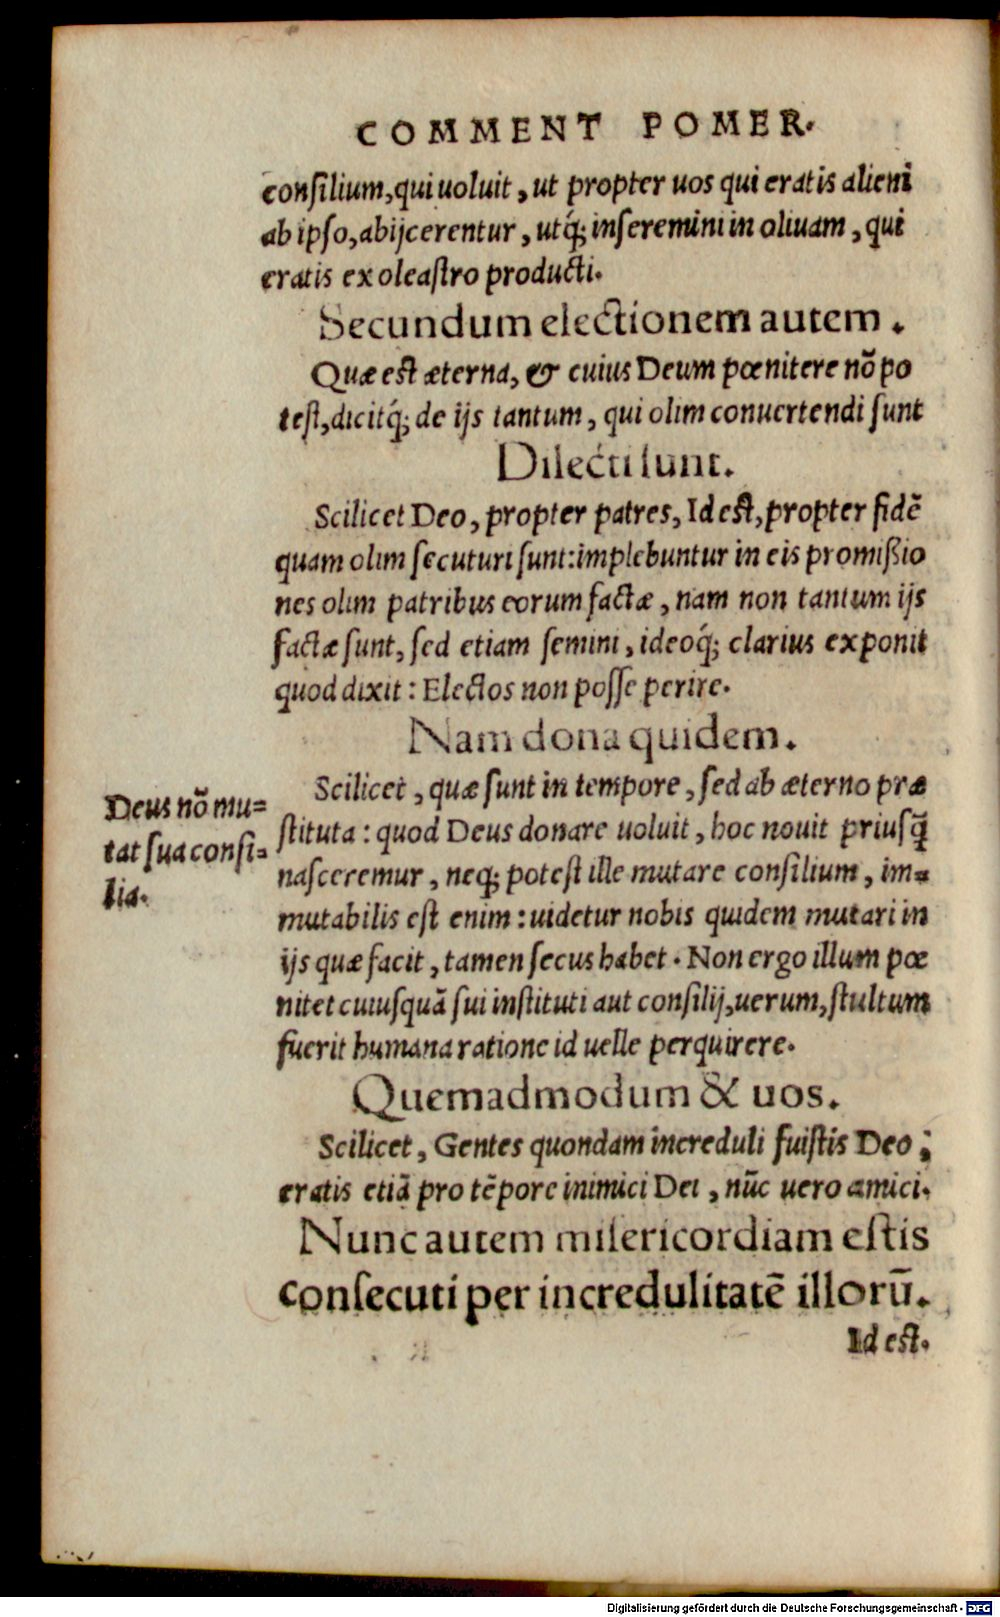 COMMENT POMER.
consilium,qui uoluit, ut propter uos qui eratis alieni
ab ipso,abijcerentur, utq́; inseremini in oliuam, qui
eratis ex oleastro producti.
Secundum electionem autem.
Quæ est æterna, & cuius Deum pœnitere nõ po
test,dicitq́; de ijs tantum, qui olim conuertendi sunt
Dilecti sunt.
Scilicet Deo, propter patres, Id est,propter fidē
quam olim secuturi sunt:implebuntur in eis promißio
nes olim patribus eorum factæ, nam non tantum ijs
factæ sunt, sed etiam semini, ideoq́; clarius exponit
quod dixit: Electos non posse perire.
Nam dona quidem.
Scilicet, quæ sunt in tempore, sed ab æterno præ
Deus nõ mu=
tat sua consi=
lia.
stituta: quod Deus donare uoluit, hoc nouit priusq̃
nasceremur, neq; potest ille mutare consilium, im=
mutabilis est enim: uidetur nobis quidem mutari in
ijs quæ facit, tamen secus habet. Non ergo illum pœ
nitet cuiusquã sui instituti aut consilij,uerum,stultum
fuerit humana ratione id uelle perquirere.
Quemadmodum & uos.
Scilicet, Gentes quondam increduli fuistis Deo;
eratis etiã pro tēpore inimici Dei, nũc uero amici.
Nunc autem misericordiam estis
consecuti per incredulitatē illorũ.
Id est.
Digitalisierung gefördert durch die Deutsche Forschungsgemeinschaft - DFG